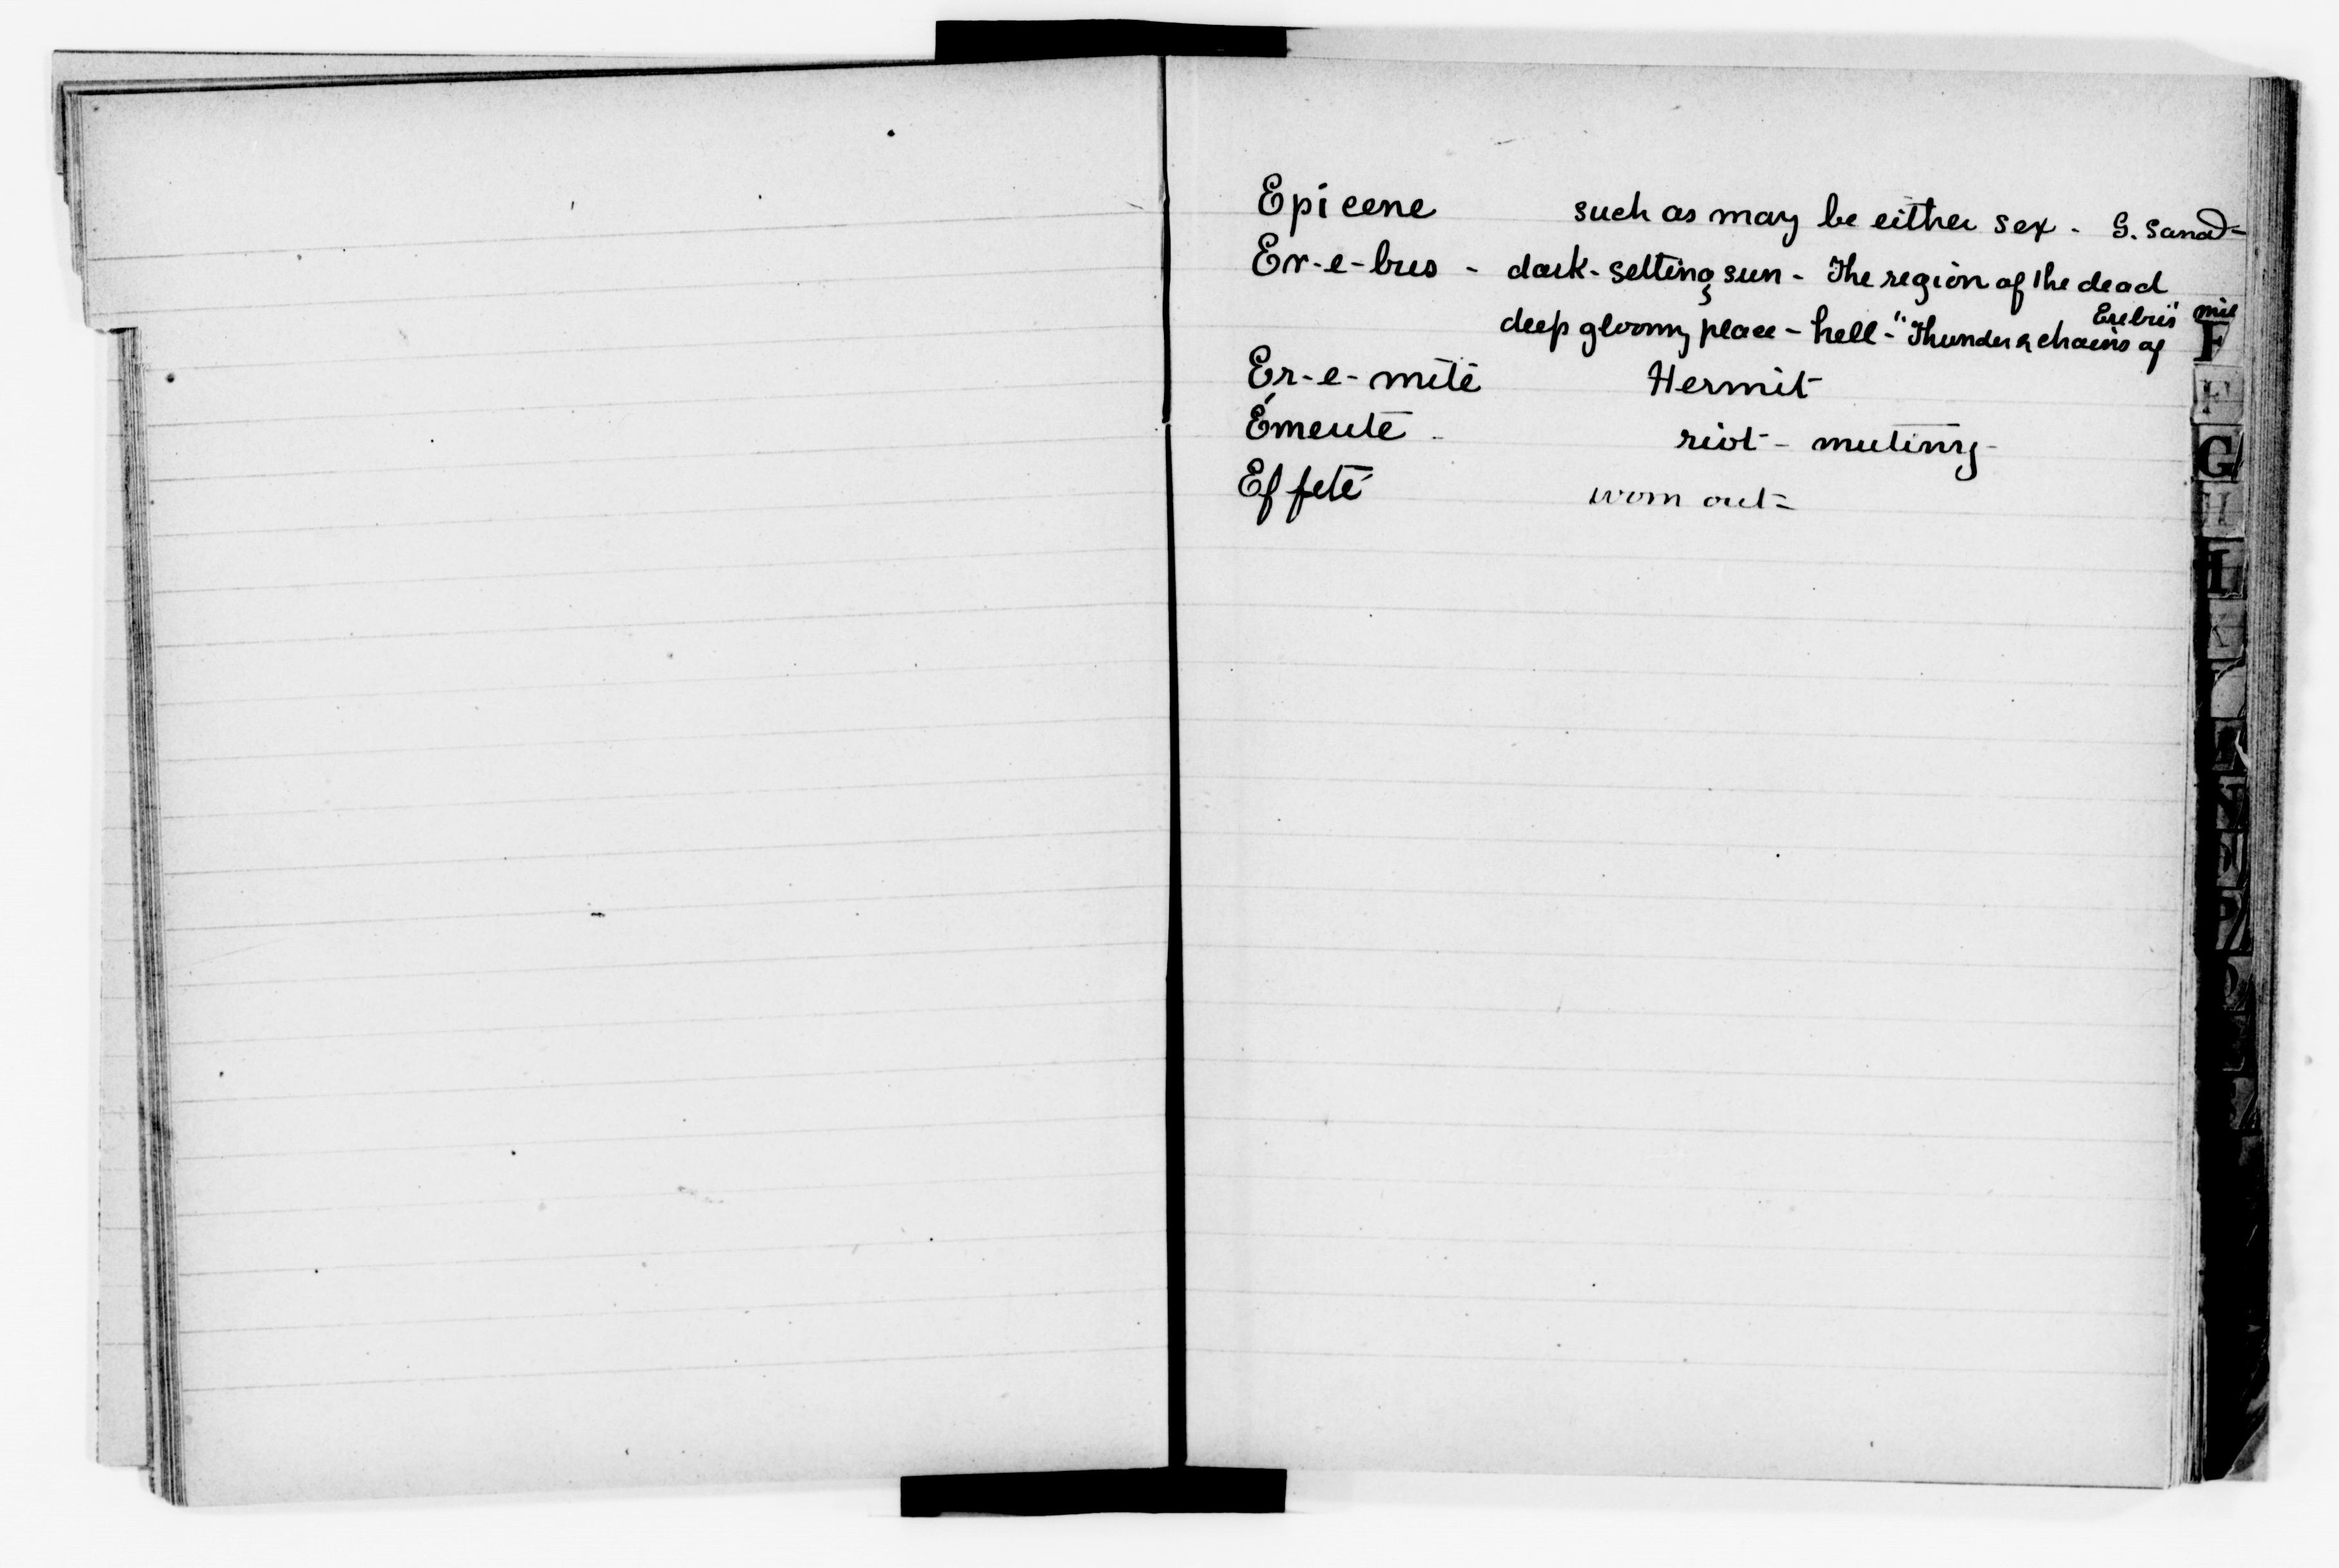 Epicene such as may be either sex - G. Sand -
Er-e-bus - dark - setting sun - The region of the dead
deep gloomy place - hell - "Thunder & chains of Erebus" Mil
Er-e-mite Hermit
Émeute - riot - mutiny -
Effete worn out -
F
F
G
H
I